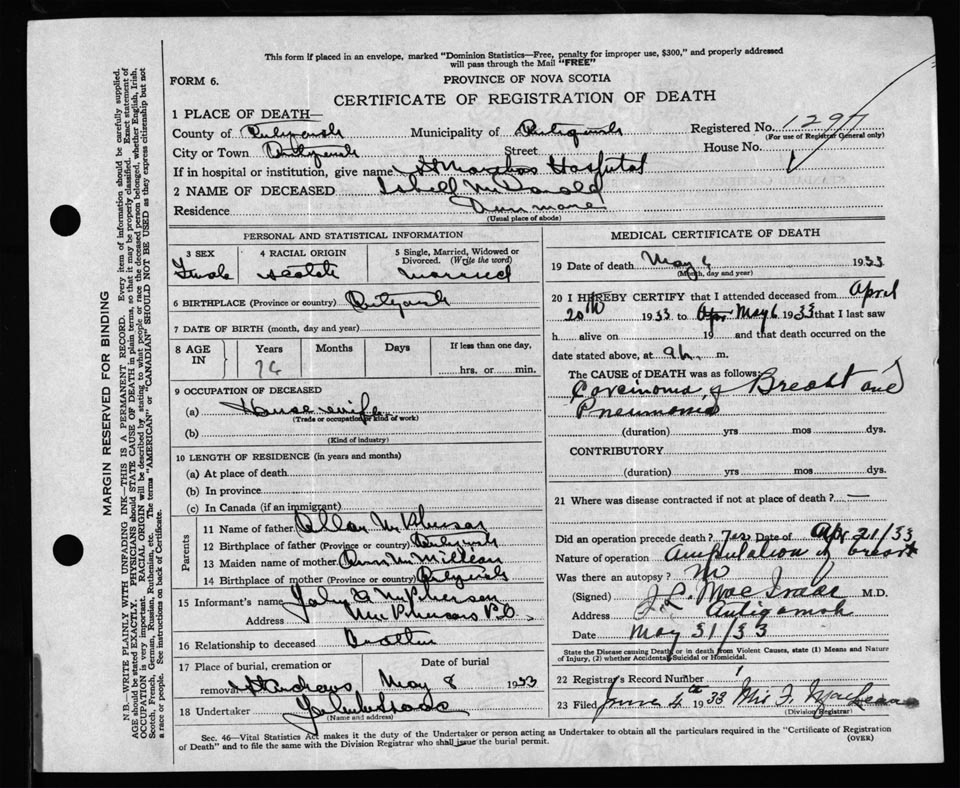 This form if placed in an envelope, marked "Dominion Statistics—Free, penalty for improper use, $300," and properly addressed
will pass through the Mail "FREE"
FORM 6.
PROVINCE OF NOVA SCOTIA
CERTIFICATE OF REGISTRATION OF DEATH
1 PLACE OF DEATH—
County of Antigonish Municipality of Antigonish Registered No. 1297
(For use of Registrar General only)
City or Town Antigonish Street House No.
If in hospital or institution, give name St Marthas Hospital
2 NAME OF DECEASED Isbell McDonald
Residence Dunmore
(Usual place of abode)
PERSONAL AND STATISTICAL INFORMATION
3 SEX 4 RACIAL ORIGIN 5 Single, Married, Widowed or Divorced. (Write the word)
Female Scotch Married
6 BIRTHPLACE (Province or country) Antigonish
7 DATE OF BIRTH (month, day and year)
8 AGE IN Years Months Days If less than one day,
hrs. or min.
9 OCCUPATION OF DECEASED
(a) House wife
(Trade or occupation or kind of work)
(b)
(Kind of industry)
10 LENGTH OF RESIDENCE (in years and months)
(a) At place of death
(b) In province
(c) In Canada (if an immigrant)
Parents
11 Name of father Allan McPherson
12 Birthplace of father (Province or country) Antigonish
13 Maiden name of mother Ann McMillean
14 Birthplace of mother (Province or country) Antigonish
15 Informant's name John McPherson
Address McPhersons P.O.
16 Relationship to deceased Brother
17 Place of burial, cremation or removal St Andrews Date of burial May 8 1933
18 Undertaker
(Name and address)
MEDICAL CERTIFICATE OF DEATH
19 Date of death May 6 1933
(Month, day and year)
20 I HEREBY CERTIFY that I attended deceased from April
20th 1933 to Apr May 6 1933 that I last saw
h alive on 19 and that death occurred on the
date stated above, at 9 m.
The CAUSE of DEATH was as follows:
Carcinoma of Breast and
Pneumonia
(duration) yrs mos dys.
CONTRIBUTORY
(duration) yrs mos dys.
21 Where was disease contracted if not at place of death? —
Did an operation precede death? Yes Date of Apr 21/33
Nature of operation Amputation of breast
Was there an autopsy? No
(Signed) M.D.
Address Antigonish
Date May 31/33
State the Disease causing Death, or in death from Violent Causes, state (1) Means and Nature
of Injury, (2) whether Accidental, Suicidal or Homicidal.
22 Registrar's Record Number 1
23 Filed June 4th 1933 Mrs F.
(Division Registrar)
Sec. 46—Vital Statistics Act makes it the duty of the Undertaker or person acting as Undertaker to obtain all the particulars required in the "Certificate of Registration
of Death" and to file the same with the Division Registrar who shall issue the burial permit.
(OVER)
MARGIN RESERVED FOR BINDING
N.B.—WRITE PLAINLY WITH UNFADING INK—THIS IS A PERMANENT RECORD. Every item of information should be carefully supplied.
AGE should be stated EXACTLY. PHYSICIANS should STATE CAUSE OF DEATH in plain terms, so that it may be properly classified. Exact statement of
OCCUPATION is very important. RACIAL ORIGIN will be described by stating to what people or race the deceased person belonged, whether English, Irish,
Scotch, French, German, Russian, Ruthenian, etc. The terms "AMERICAN" or "CANADIAN" SHOULD NOT BE USED as they express citizenship but not
a race or people. See instructions on back of Certificate.